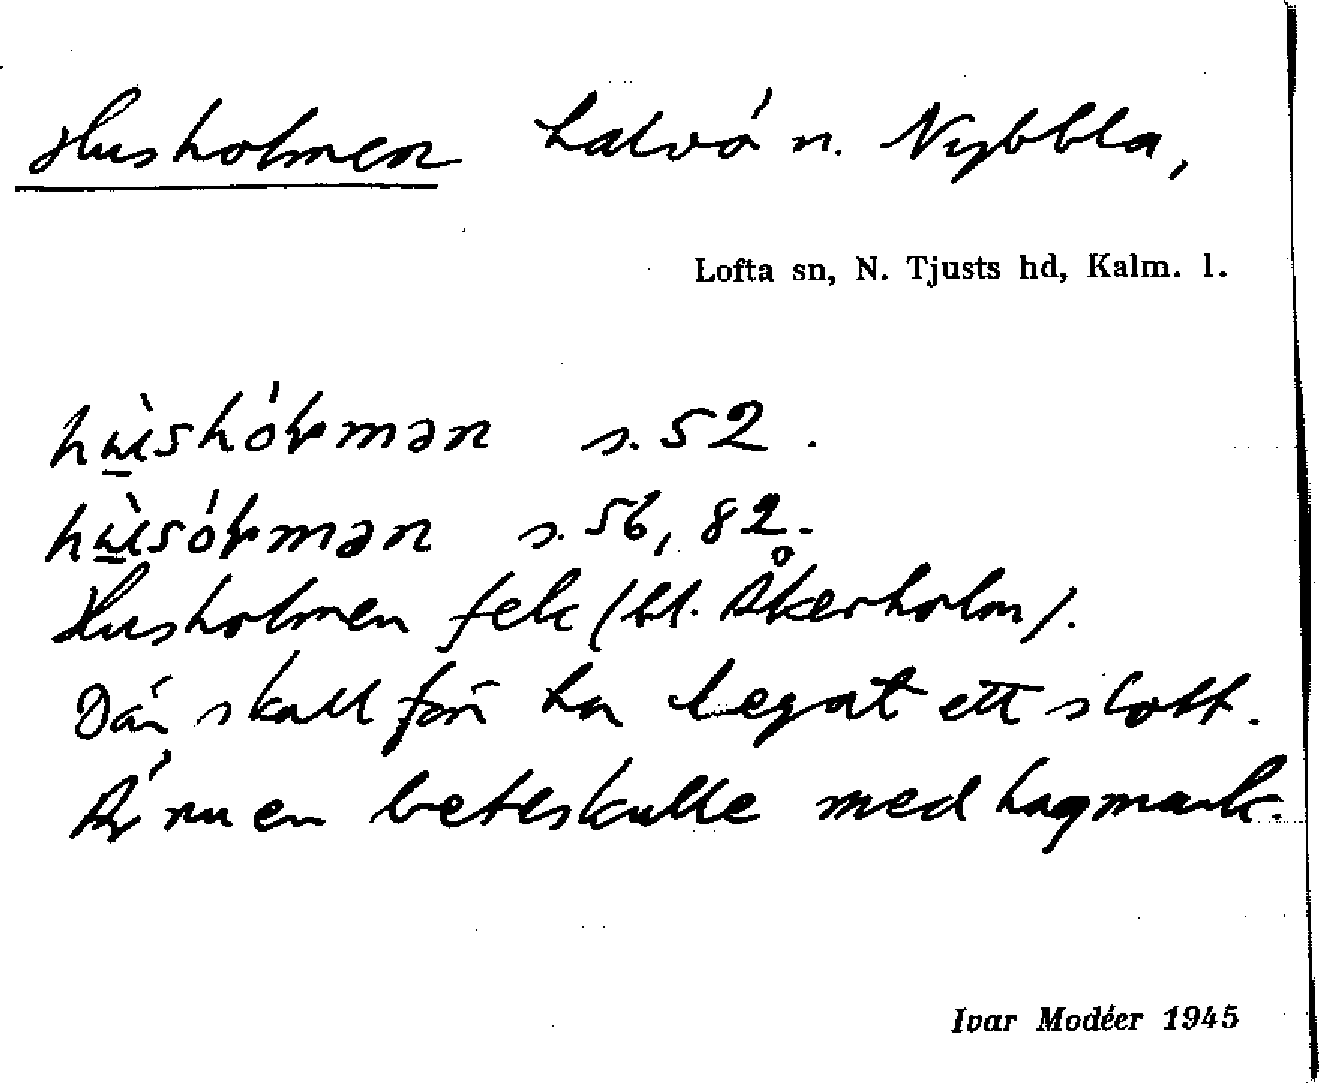 Husholmen halvö n. Nybbla,
Lofta sn, N. Tjusts hd, Kalm. l.
hùshóɫmən s. 52.
hùsóɫmən s. 56, 82.
Husholmen fek (bl. Åkerholm).
Där skall förr ha legat ett slott.
Är nu en beteskulle med hagmark.
Ivar Modéer 1945